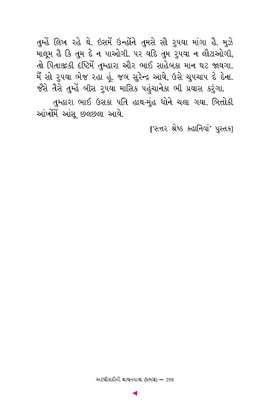 તુમ્હેં લિખ રહે થે. ઇસમેં ઉન્હોંને તુમસે સૌ રુપયા માંગા હૈ. મુઝે
માલૂમ હૈ કિ તુમ દે ન પાઓગી. પર યદિ તુમ રુપયા ન લૌટાઓગી,
તો પિતાજીકી દૃષ્ટિમેં તુમ્હારા ઔર ભાઈ સાહેબકા માન ઘટ જાયગા.
મૈં સૌ રુપયા ભેજ રહા હૂં. જબ સુરેન્દ્ર આવે, ઉસે ચુપચાપ દે દેના.
જૈસે તૈસે તુમ્હેં બીસ રુપયા માસિક પહુંચાનેકા ભી પ્રયાસ કરુંગા.
તુમ્હારા ભાઈ ઉસકા પતિ હાથ-મુંહ ધોને ચલા ગયા. બિત્તોકી
આંખોંમેં આંસૂ છલછલા આયે.
['સત્તર શ્રેષ્ઠ કહાનિયાં' પુસ્તક]
અરધી સદીની વાચનયાત્રા (સમગ્ર) — 299